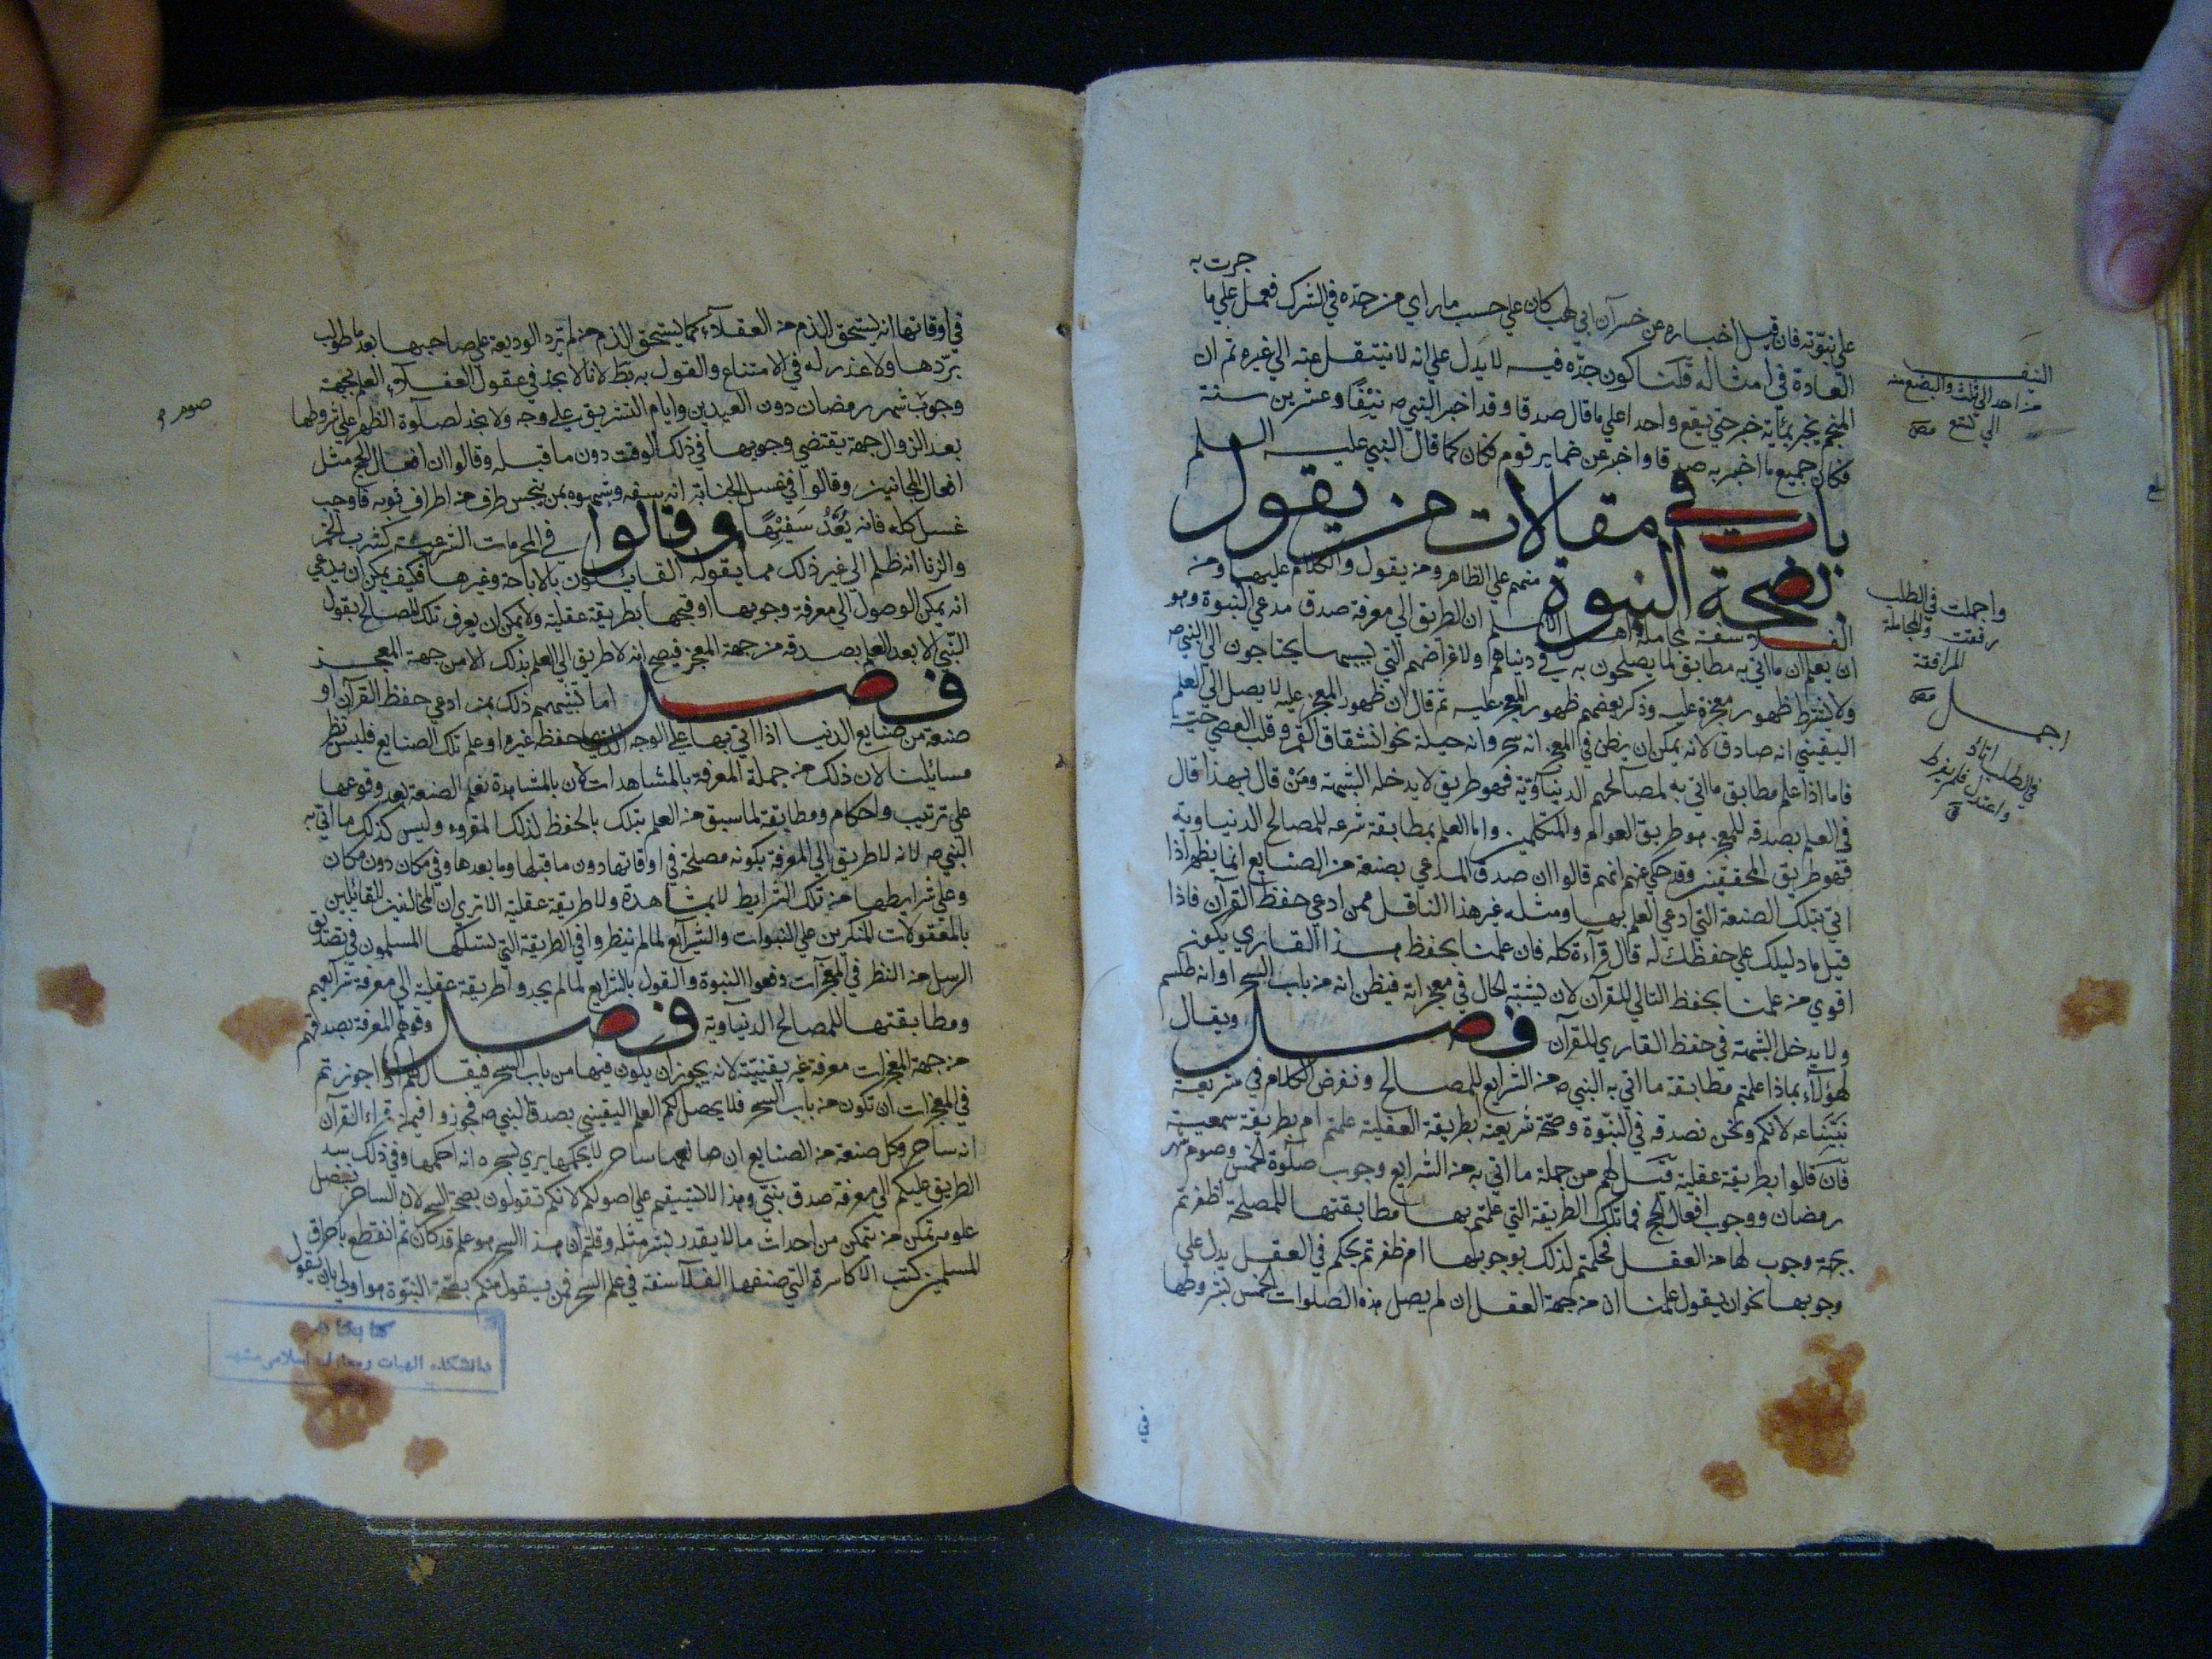 جرت به
على نبوّته فان قيل اخباره عن خسران ابي لهب كان علي حسب ما راي من جدّه في الشرك فعمل علي ما
العادة في امثاله قلنا كون جدّه فيه لا يدل علي انه لا ينتقل عنه الي غيره ثم ان
المنجم يخبر بمأية خبر حتي يقع واحدا علي ما قال صدقا وقد اخبر النبي ص نيّفًا وعشرين سنة
فكان جميع ما اخبر به صدقا واخبر عن ضماير قوم فكان كما قال النبي عليه السلم
باب في مقالات من يقول
بصحة النبوة
منهم علي الظاهر ومن يقول والكلام عليها ومن
الفلاسفة لمجاملة اهل الاسلم ان الطريق الي معرفة صدق مدعي النبوة وهو
ان يعلم ان ما اتي به مطابق لما يصلحون به في دنياهم ولاغراضهم التي لسببها يحتاجون الي النبي ص
ولا يشترط ظهور معجزة عليه وذكر بعضهم ظهور المعجز عليه ثم قال ان ظهور المعجز عليه لا يصل الي العلم
اليقيني انه صادق لانه يمكن ان يظن في المعجز انه سحر وانه حيلة نحو انشقاق القمر وقلب العصي حيّة
فاما اذا علم مطابق ما اتي به لمصالحهم الدنياويّة فهو طريق لا يدخله الشبهة ومَنْ قال بهذا قال
في العلم بصدقه للمعجز هو طريق العوام والمتكلمين واما العلم بمطابقة شرعه للمصالح الدنياوية
فهو طريق المحققين وقد حكي عنهم انهم قالوا ان صدق المدعي بصنعة من الصنايع انما يظهر اذا
اتي بتلك الصنعة التي ادعي العلم بها ومثله غير هذا الناقل ممن ادعي حفظ القرآن فاذا
قيل ما دليلك علي حفظك له قال قرآءة كله فان علمنا بحفظ هذا القاري يكون
اقوي من علمنا بحفظ التالي للقرآن لان يشتبه الحال في معجزاته فيظن انه من باب السحر او انه طلسم
ولا يدخل الشبهة في حفظ القاري للقرآن فصل ويقال
لهؤلاء بماذا علمتم مطابقة ما اتي به النبي ص من الشرايع للمصالح ونفرض الكلام في شريعة
نبيّنا عه لانكم ونحن نصدقه في النبّوة وصحّة شريعته ابطريقة العقلية علمتم ام بطريقة سمعية
فان قالوا بطريقة عقلية قيل لهم من جملة ما اتي به من الشرايع وجوب صلوة الخمس وصوم شهر
رمضان ووجوب افعال الحج فما تلك الطريقة التي علمتم بها مطابقتها للمصلحة اظفرتم
بجهة وجوب لها من العقل فحكمتم لذلك بوجوبها ام ظفرتم بحكم في العقل يدل علي
وجوبها نحو ان يقول علمنا ان من جهة العقل ان لم يصل هذه الصلوات الخمس بشروطها
النيف
من احد الي ثلث والبضع منه
الي تسع
واجملت في الطلب
رفقت والمجاملة
اجمل
في الطلب اتاد
واعتدل فلم يفرط
في اوقاتها انه يستحق الذم من العقلاء كما يستحق الذم من لم يرد الوديعة علي صاحبها بعد ما طولب
بردّها ولا عذر له في الامتناع والقول به بط لانا لا نجد في عقول العقلاء العلم بجهة
وجوب شهر رمضان دون العيدين وايام التشريق علي وجه ولا نجد لصلوة الظهر علي شروطها
صوم
بعد الزوال جهة يقتضي وجوبها في ذلك الوقت دون ما قبله وقالوا ان افعال الحج مثل
افعال المجانين وقالوا في غسل الجنابة انه سفه وشبهوه بمن ينجس طرف من اطراف ثوبه فاوجب
غسل كله فانه يُعَدُّ سَفِيْهًا وقالوا في المحرمات الشرعية كشرب الخمر
والزنا انه ظلم الي غير ذلك مما يقوله القايلون بالاباحة وغيرها فكيف يمكن ان يدعي
انه يمكن الوصول الي معرفة وجوبها او قبحها بطريقة عقلية ولا يمكن ان يعرف تلك المصالح بقول
النبّي الا بعد العلم بصدقه من جهة المعجز فيصح انه لا طريق الي العلم بذلك الا من جهة المعجز
فصل اما تشبيههم ذلك بمن ادعي حفظ القرآن او
صنعة من صنايع الدنيا اذا اتي بها علي الوجه الذي حفظه غيره او علم تلك الصنايع فليس نظر
مسايلنا لان ذلك من جملة المعرفة بالمشاهدات لان بالمشاهدة نعلم الصنعة بعد وقوعها
علي ترتيب واحكام ومطابقة لما سبق من العلم بتلك بالحفظ لذلك المقروء وليس كذلك ما اتي به
النبي ص لانه لا طريق الي المعرفة بكونه مصلحة في اوقاتها دون ما قبلها وما بعدها وفي مكان دون مكان
وعلي شرايطها من تلك الشرايط لا بمشاهدة ولا طريقة عقلية الا تري ان المخالفين القائلين
بالمعقولات المنكرين علي النبوات والشرايع لما لم ينظروا في الطريقة التي يسلكها المسلمون في تصديق
الرسل من النظر في المعجزات دفعوا النبوة والقول بالشرايع لما لم يجدوا طريقة عقلية الي معرفة شرايعهم
ومطابقتها للمصالح الدنياوية فصل وقولهم المعرفة بصدقهم
من جهة المعجزات معرفة غير يقينيّة لانه يجوز ان يكون فيها من باب السحر فيقال لهم اذا جوزتم
في المعجزات ان تكون من باب السحر فلا يحصل لكم العلم اليقيني بصدق النبي ص فجوزوا فيمن قراء القرآن
انه ساحر وكل صنعة من الصنايع ان صانعها ساحر لا يحكمها يري بسحره انه احكمها وفي ذلك سد
الطريق عليكم الي معرفة صدق نبيّ وهذا لا يستقيم علي اصولكم لانكم تقولون بصحة السحر لان الساحر بفضل
علومه تمكن من يتمكن من احداث ما لا يقدر بشر مثله وقلتم ان هذا السحر هو علم قد كان ثم انقطع باحراق
المسلمين كتب الاكاسرة التي صنفها الفلاسفة في علم السحر فمن يقول منكم بصحّة النبوّة هو اولي بان يقول
كتابخانه
دانشكده الهيات ومعارف اسلامى مشهد